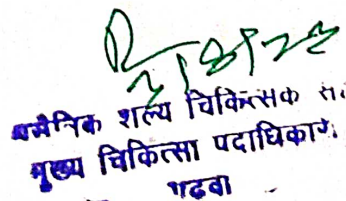 असैनिक शल्य चिकित्सक स.
मुख्य चिकित्सा पदाधिकारी
गढवा